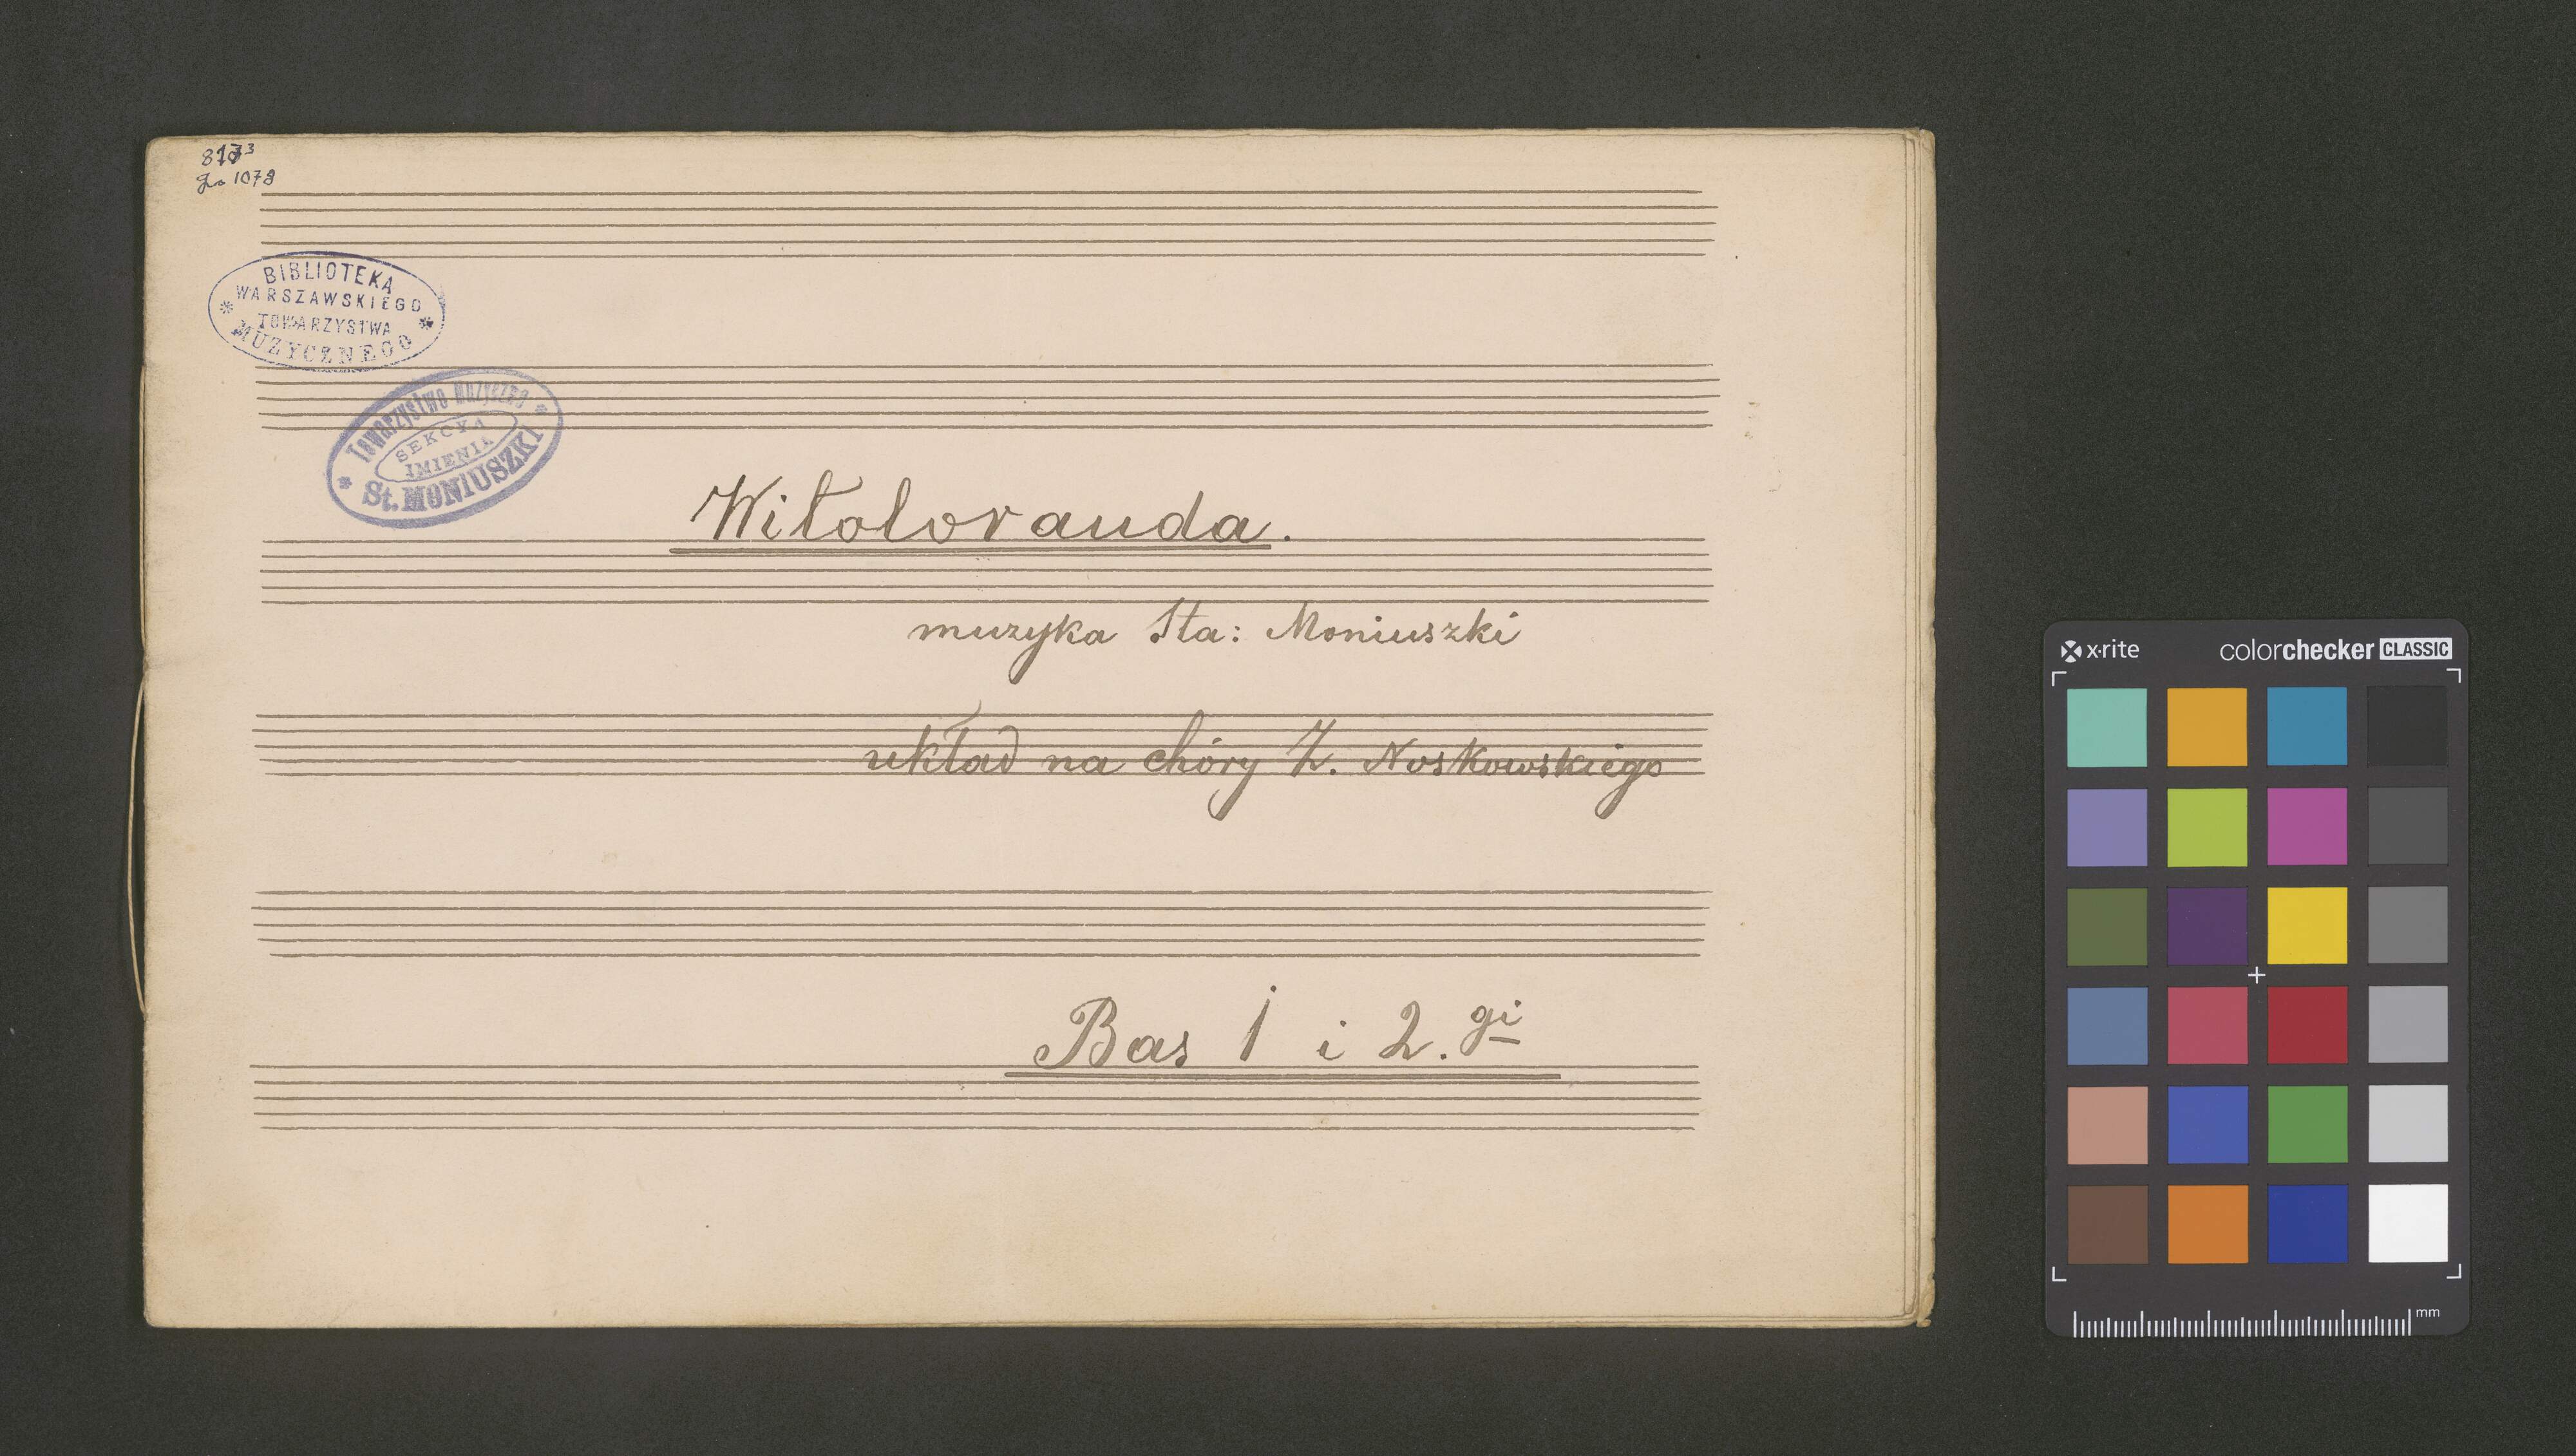 BIBLIOTEKA
WARSZAWSKIEGO
TOWARZYSTWA
MUZYCZNEGO
Towarzystwo Muzyczno
SEKCYA
IMIENIA
St. MONIUSZKI
Witolorauda.
muzyka Sta: Moniuszki
układ na chóry Z. Noskowskiego
Bas 1 i 2.gi
x·rite colorchecker CLASSIC
mm